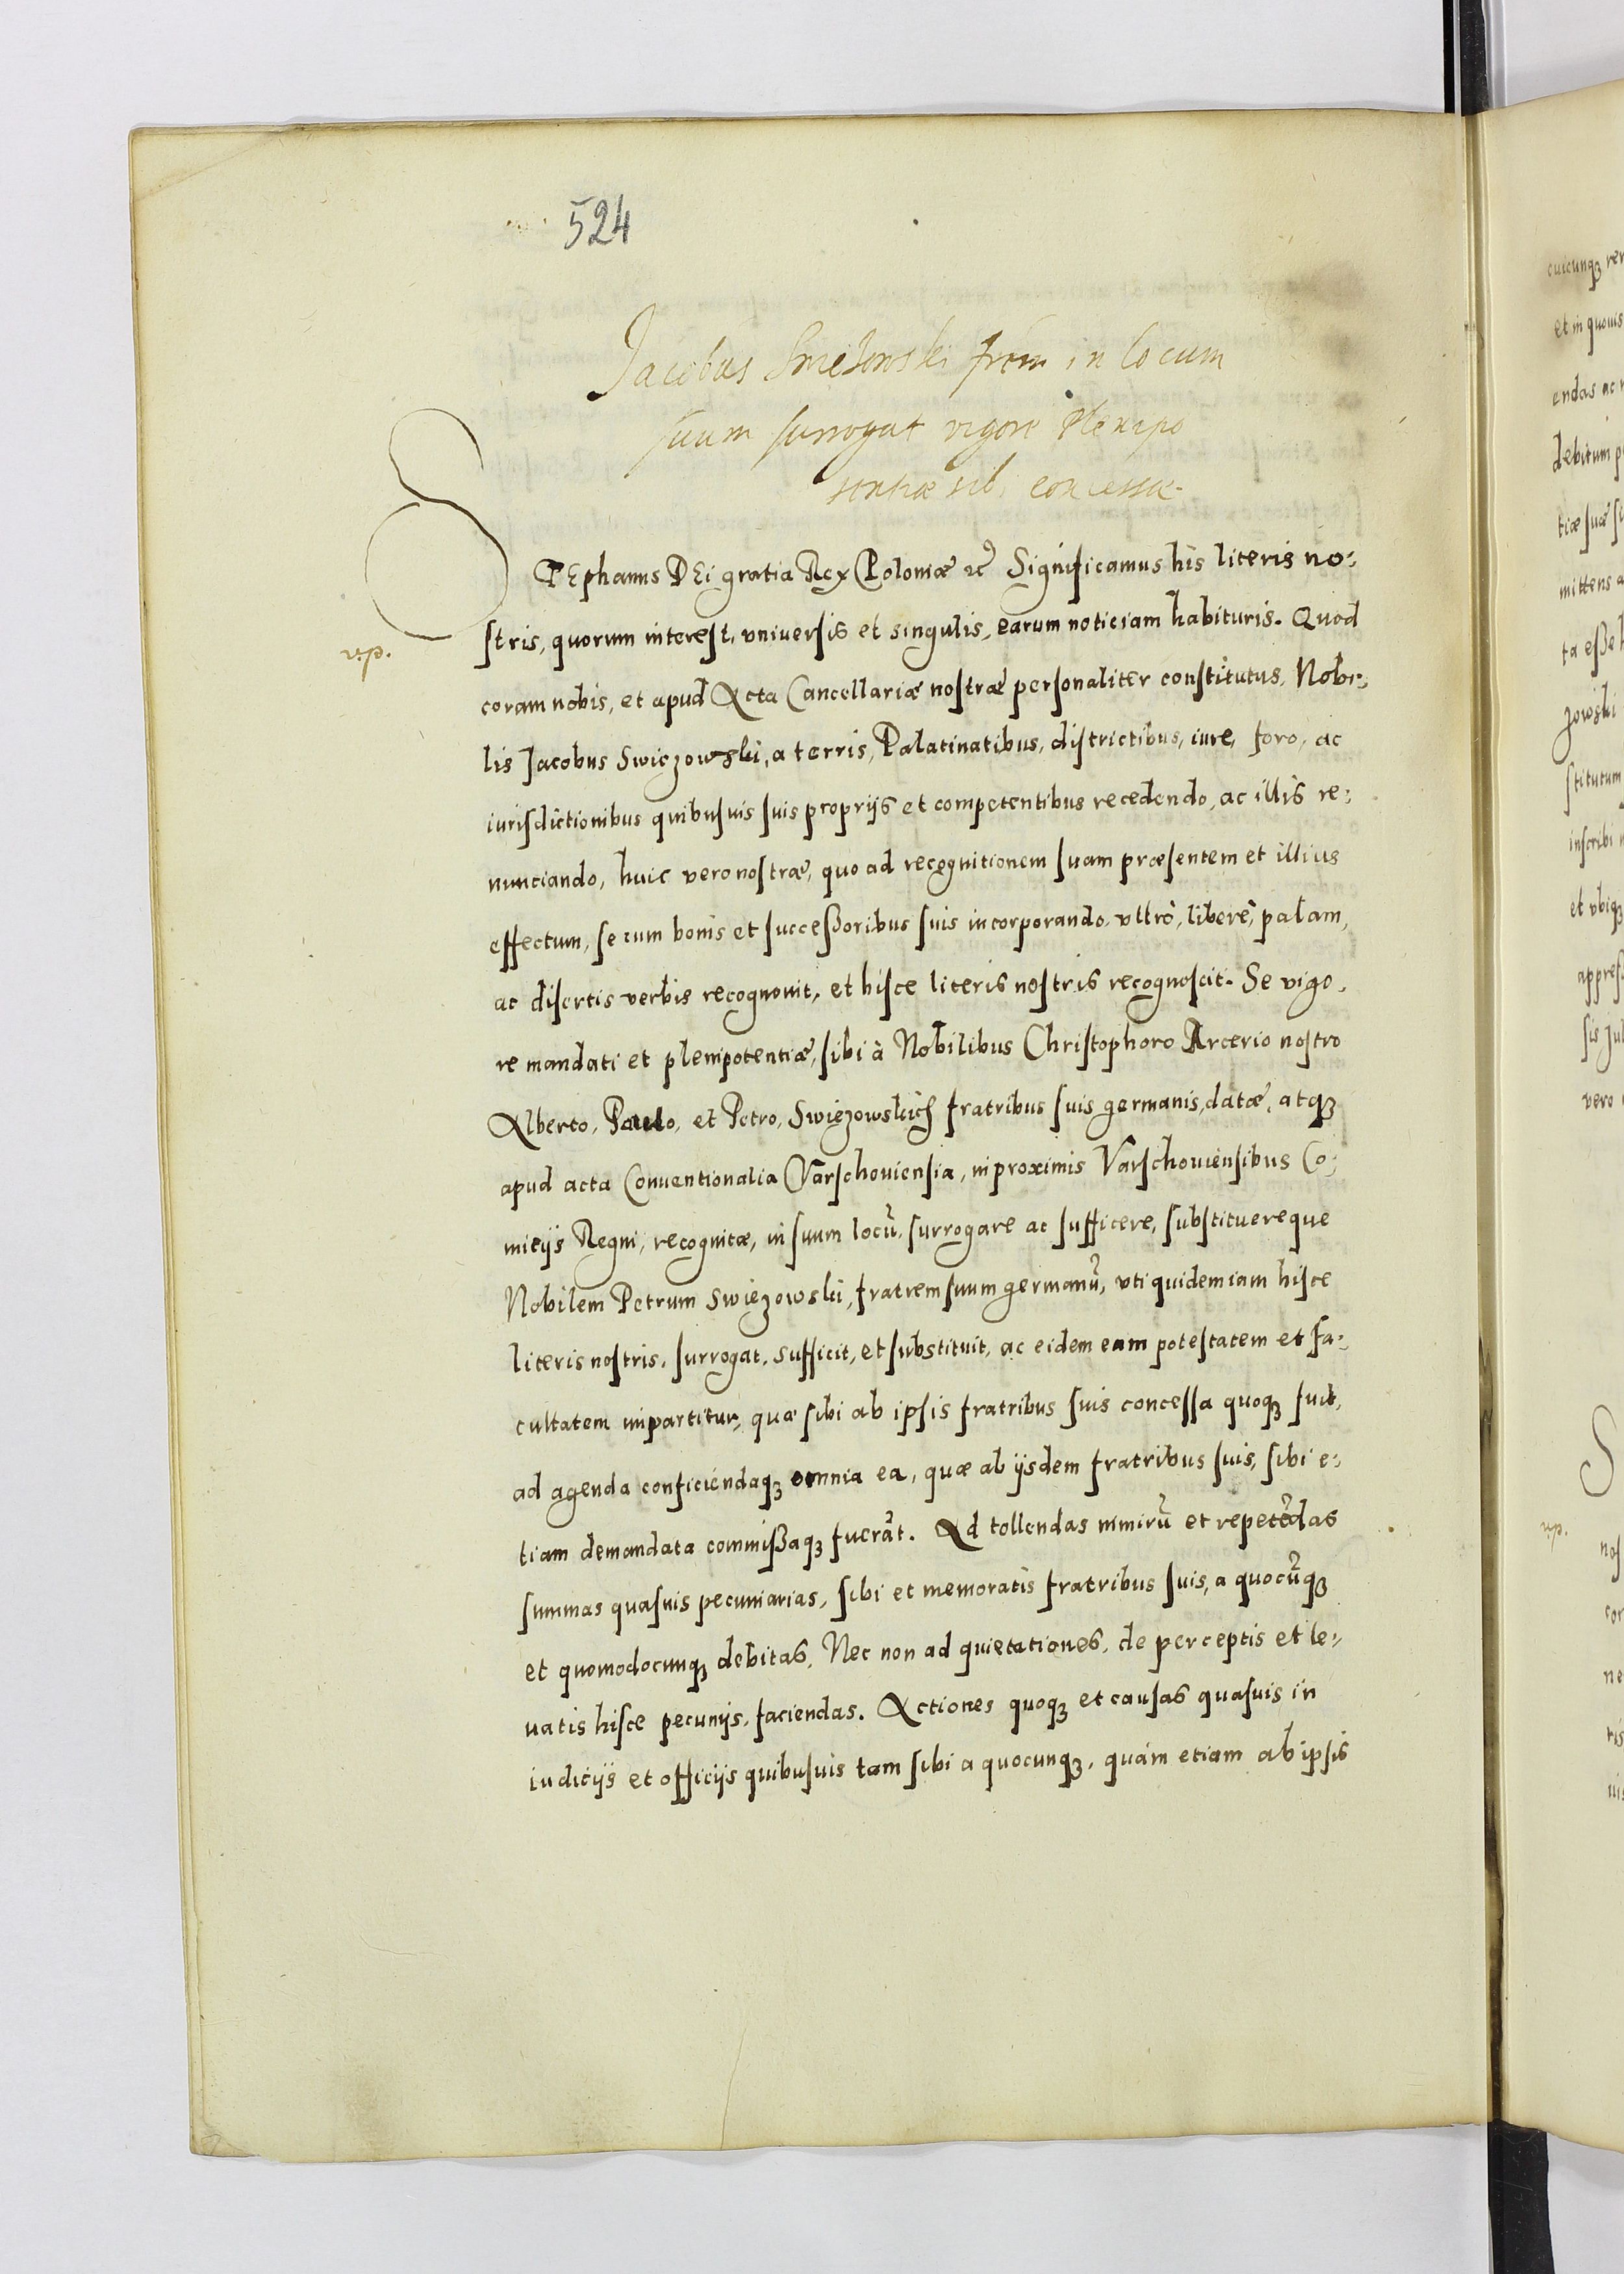 524
Jacobus Swiezowski frem in locum
suum surrogat vigore Plenipo
tentiæ sibi concessæ.
STEphanus DEi gratia Rex Poloniæ ꝛc Significamus his literis no:
stris, quorum interest, vniuersis et singulis, earum noticiam habituris. Quod
coram nobis, et apud Acta Cancellariæ nostræ personaliter constitutus, Nobi:
lis Jacobus Swiezowski, a terris, Palatinatibus, districtibus, iure, foro, ac
iurisdictionibus quibusuis suis proprijs et competentibus recedendo, ac illis re:
nunciando, huic vero nostræ, quo ad recognitionem suam præsentem et illius
effectum, se cum bonis et successoribus suis incorporando, vltrò, liberè, palam,
ac disertis verbis recognouit, et hisce literis nostris recognoscit. Se vigo,
re mandati et plenipotentiæ, sibi à Nobilibus Christophoro Arcerio nostro
Alberto, Paulo, et Petro, Swięzowskich fratribus suis germanis, datæ, atqꝫ
apud acta Conuentionalia Varschouiensia, in proximis Varschouiensibus Co:
mitijs Regni, recognitæ, in suum locũ, surrogare ac sufficere, substituereque
Nobilem Petrum Swięzowski, fratrem suum germanũ, vti quidem iam hisce
literis nostris, surrogat, sufficit, et substituit, ac eidem eam potestatem et fa:
cultatem impartitur, quæ sibi ab ipsis fratribus suis concessa quoqꝫ fuit,
ad agenda conficiendaqꝫ omnia ea, quæ ab ijsdem fratribus suis, sibi e:
tiam demandata commissaqꝫ fuerãt. Ad tollendas nimirũ et repetẽdas
summas quasuis pecuniarias, sibi et memoratis fratribus suis, a quocũqꝫ
et quomodocunqꝫ debitas, Nec non ad quietationes, de perceptis et le:
uatis hisce pecunijs, faciendas. Actiones quoqꝫ et causas quasuis in
iudicijs et officijs quibusuis tam sibi a quocunqꝫ, quàm etiam ab ipsis